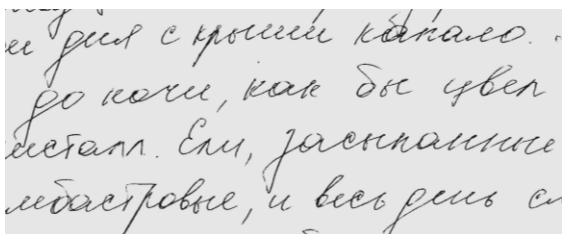 дня с крыши капало.
до ночи, как бы цвел
металл. Ели, засыпанные
мбастровые, и весь день сл